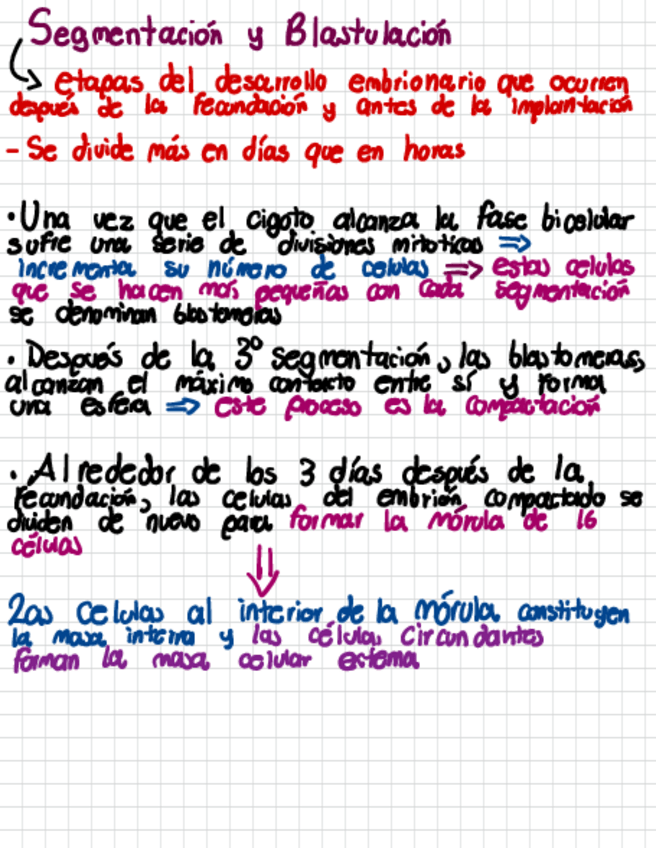 Segmentación y Blastulación
etapas del desarrollo embrionario que ocurren
después de la fecundación y antes de la implantación
- Se divide más en días que en horas
• Una vez que el cigoto alcanza la fase bicelular
sufre una serie de divisiones mitoticas ⇒
incrementa su número de celulas ⇒ estas celulas
que se hacen más pequeñas con cada segmentación
se denominan blastomeras
• Después de la 3° segmentación, las blastomeras,
alcanzan el máximo contacto entre sí y forma
una esfera ⇒ este proceso es la compactación
• Alrededor de los 3 días después de la
fecundación, las celulas del embrión compactado se
dividen de nuevo para formar la mórula de 16
células
⇓
Las celulas al interior de la mórula constituyen
la masa interna y las células circundantes
forman la masa celular externa